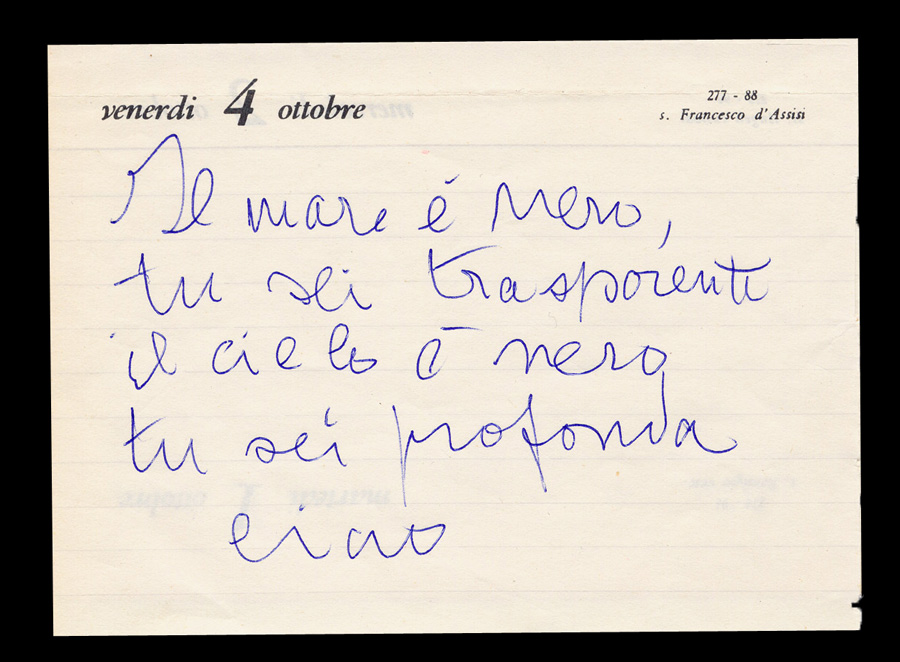 venerdi 4 ottobre
277 - 88
s. Francesco d'Assisi
Il mare è nero,
tu sei trasparente
il cielo è nero
tu sei profonda
ciao